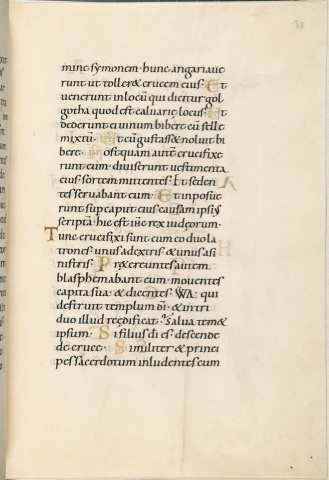 38
mine symonem · hunc angariave
runt ut toller& crucem eius · Et
venerunt in locū qui dicitur gol
gotha quod est calvarię locus · Et
dederunt ei uinum bibere cū felle
mixtū · Et cū gustass& noluit bi
bere · Postquam autē crucifixe
runt eum · diuiserunt vestimenta
eius · sortem mittentes · Et seden
tes servabant eum · Et inposue
runt sup caput eius causam ipsi'
scriptā · hic est ihc rex iudeorum ·
Tunc crucifixi sunt cum eo duo la
trones · unus a dextris · & unus a si
nistris · Pr&ereuntes autem
blasphemabant eum · moventes
capita sua · & dicentes · WA · qui
destruit templum dī · & in tri
duo illud reędificat · Salva tem&
ipsum · Si filius dī es · descende
de cruce · Similiter & princi
pes sacerdotum inludentes eum